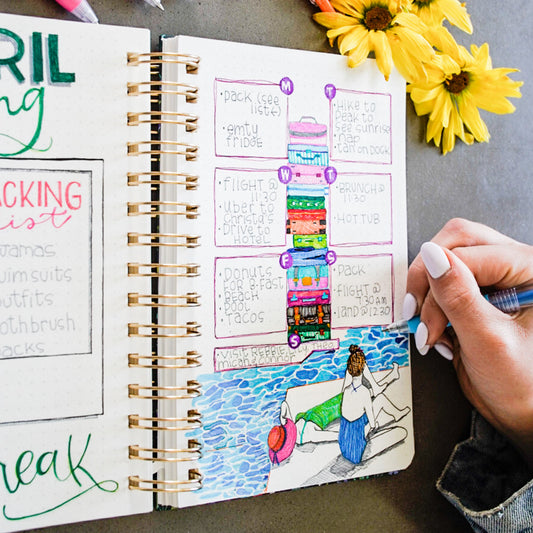 RIL
ng
ACKING
ist
ajamas
uimsuits
outfits
oothbrush
nacks
reak
M
• pack (see
list←)
• emty
fridge
T
• Hike to
peak to
see sunrise
• nap
• tan on dock
W
• flight @
11:30
• Uber to
Christa's
• Drive to
Hotel
T
• BRUNCH @
11:30
• HOT TUB
F
• Donuts
for B-fast
• Beach
• Pool
• Tacos
S
• Pack
• flight @
7:30 AM
• land @ 12:30
S
• Visit Robbie
Micah & Connor